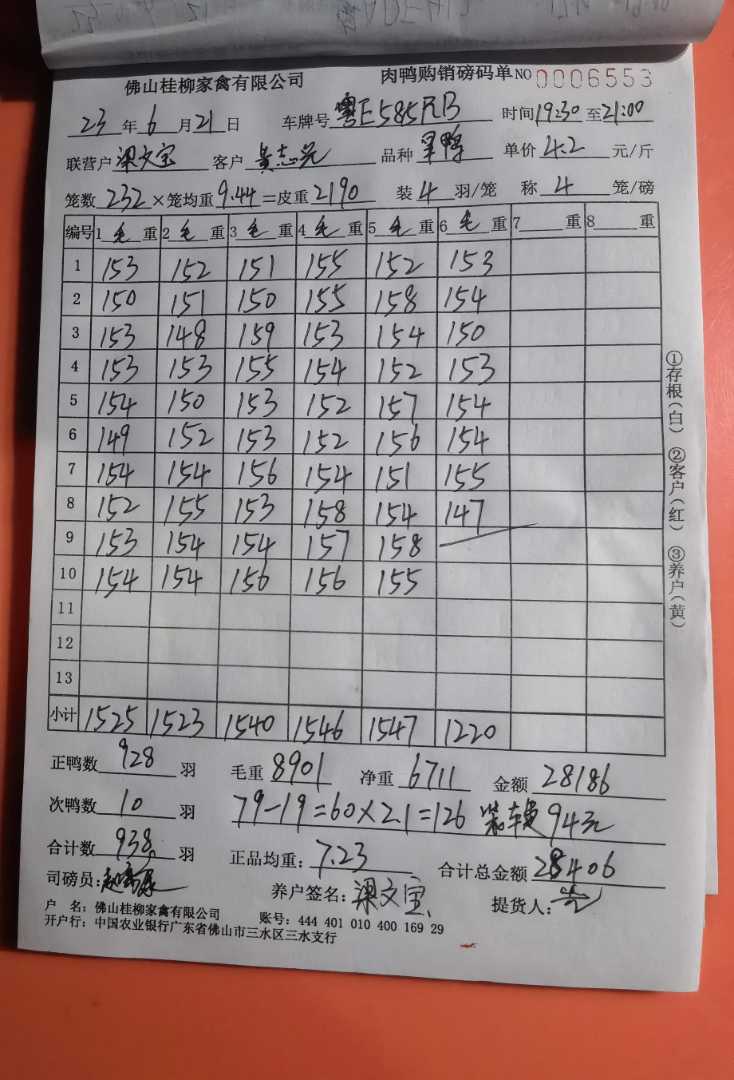 佛山桂柳家禽有限公司 肉鸭购销磅码单 NO 0006553
23年6月21日 车牌号粤E585RB 时间19:30至21:00
联营户梁文宝 客户黄志 品种 单价4.2元/斤
笼数232×笼均重9.44=皮重2190 装4羽/笼 称4笼/磅
编号 1毛重 2毛重 3毛重 4毛重 5毛重 6毛重 7重 8重
1 153 152 151 155 152 153
2 150 151 150 155 158 154
3 153 148 159 153 154 150
4 153 153 155 154 152 153
5 154 150 153 152 157 154
6 149 152 153 152 156 154
7 154 154 156 154 151 155
8 152 155 153 158 154 147
9 153 154 154 157 158
10 154 154 156 156 155
11
12
13
小计 1525 1523 1540 1546 1547 1220
正鸭数928羽 毛重8901 净重6711 金额28186
次鸭数10羽 79-19=60×2.1=126 装车费94元
合计数938羽 正品均重:7.23 合计总金额28406
司磅员: 养户签名:梁文宝 提货人:
户 名:佛山桂柳家禽有限公司 账号:444 401 010 400 169 29
开户行:中国农业银行广东省佛山市三水区三水支行
①存根(白) ②客户(红) ③养户(黄)